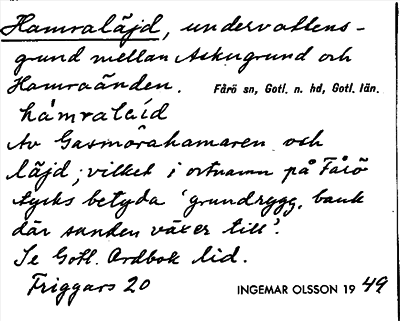 Hamraläjd, undervattens-
grund mellan Askugrund och
Hamraänden. Fårö sn, Gotl. n. hd, Gotl. län.
hámralaíd
Av Gasmörahamaren och
läjd, vilket i ortnamn på Fårö
tycks betyda 'grundrygg, bank
där sanden växer till'.
Se Gotl. Ordbok lid.
Friggars 20 INGEMAR OLSSON 19 49